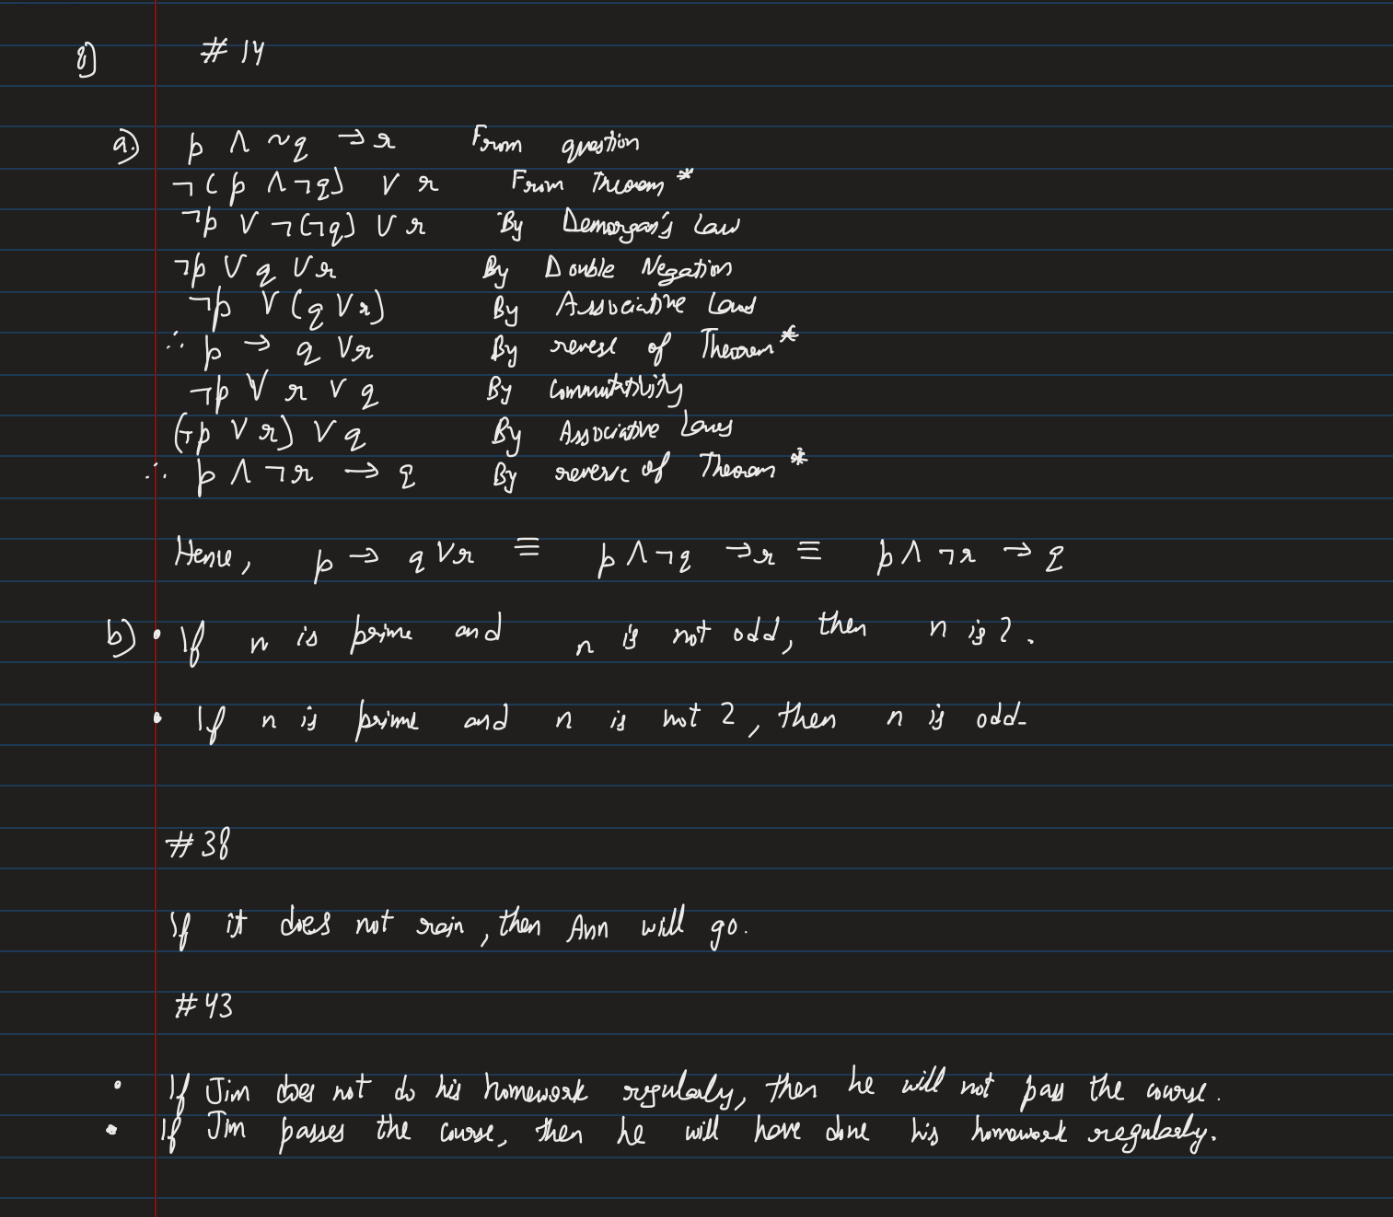 8) # 14
a) p ∧ ~q → r From question
¬(p ∧ ¬q) ∨ r From Theorem *
¬p ∨ ¬(¬q) ∨ r By Demorgan's Law
¬p ∨ q ∨ r By Double Negation
¬p ∨ (q ∨ r) By Associative Laws
∴ p → q ∨ r By reverse of Theorem *
¬p ∨ r ∨ q By Commutativity
(¬p ∨ r) ∨ q By Associative Laws
∴ p ∧ ¬r → q By reverse of Theorem *
Hence, p → q ∨ r ≡ p ∧ ¬q → r ≡ p ∧ ¬r → q
b) • If n is prime and n is not odd, then n is 2.
• If n is prime and n is not 2, then n is odd.
# 38
If it does not rain, then Ann will go.
# 43
• If Jim does not do his homework regularly, then he will not pass the course.
• If Jim passes the course, then he will have done his homework regularly.